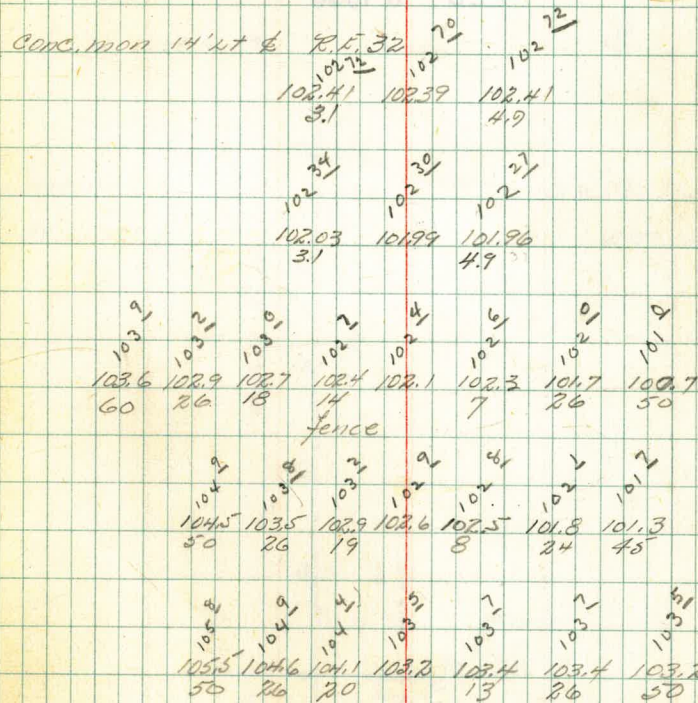 Conc. mon 14' Lt ⅊ R.F. 32
102 72 102 70 102 72
102.41 102.39 102.41
3.1 4.9
102 34 102 30 102 27
102.03 101.99 101.96
3.1 4.9
103 9 103 2 103 0 102 7 102 4 102 6 102 0 101 0
103.6 102.9 102.7 102.4 102.1 102.3 101.7 100.7
60 26 18 14 7 26 50
fence
104 9 103 8 103 2 102 9 102 8 102 1 101 7
104.5 103.5 102.9 102.6 102.5 101.8 101.3
50 26 19 8 24 45
105 8 104 9 104 4 103 5 103 7 103 7 103 5
105.5 104.6 104.1 103.2 103.4 103.4 103.2
50 26 20 13 26 50